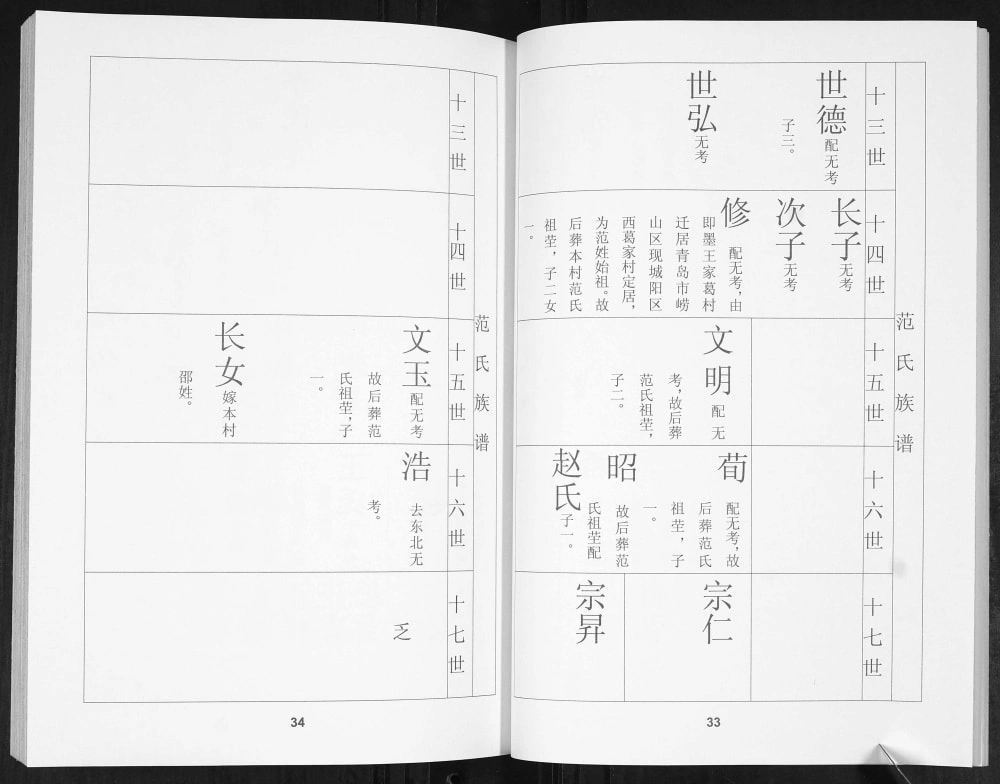 范氏族谱
十三世
世德
配无考
子三。
世弘
无考
十四世
长子
无考
次子
无考
修
配无考，由
即墨王家葛村
迁居青岛市崂
山区现城阳区
西葛家村定居，
为范姓始祖。故
后葬本村范氏
祖茔，子二女
一。
十五世
文明
配无
考，故后葬
范氏祖茔，
子二。
十六世
荀
配无考，故
后葬范氏
祖茔，子
一。
昭
故后葬范
氏祖茔配
赵氏
子一。
十七世
宗仁
宗昇
33
范氏族谱
十三世
十四世
十五世
文玉
配无考
故后葬范
氏祖茔，子
一。
长女
嫁本村
邵姓。
十六世
浩
去东北无
考。
十七世
乏
34